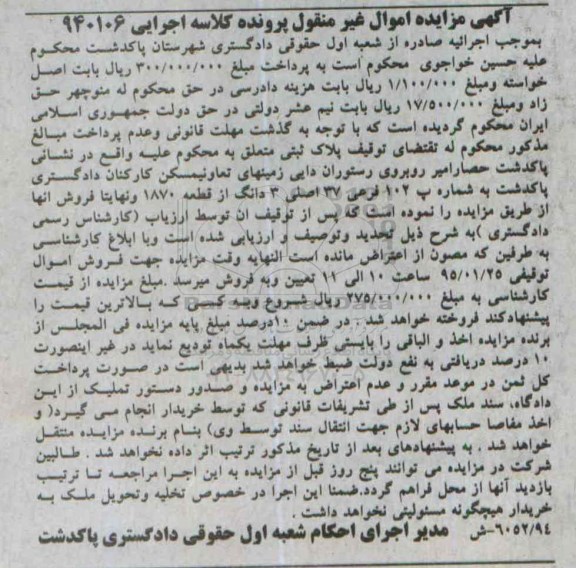 آگهی مزایده اموال غیر منقول پرونده کلاسه اجرایی ۹۴۰۱۰۶
بموجب اجرائیه صادره از شعبه اول حقوقی دادگستری شهرستان پاکدشت محکوم
علیه حسین خواجوی محکوم است به پرداخت مبلغ ۳۰۰/۰۰۰/۰۰۰ ریال بابت اصل
خواسته ومبلغ ۱/۱۰۰/۰۰۰ ریال بابت هزینه دادرسی در حق محکوم له منوچهر حق
زاد ومبلغ ۱۷/۵۰۰/۰۰۰ ریال بابت نیم عشر دولتی در حق دولت جمهوری اسلامی
ایران محکوم گردیده است که با توجه به گذشت مهلت قانونی وعدم پرداخت مبالغ
مذکور محکوم له تقتضای توقیف پلاک ثبتی متعلق به محکوم علیه واقع در نشانی
پاکدشت حصارامیر روبروی رستوران دایی زمینهای تعاونیمسکن کارکنان دادگستری
پاکدشت به شماره پ ۱۰۲ فرعی ۳۷ اصلی ۳ دانگ از قطعه ۱۸۷۰ ونهایتا فروش انها
از طریق مزایده را نموده است که پس از توقیف ان توسط ارزیاب (کارشناس رسمی
دادگستری )به شرح ذیل تحدید وتوصیف و ارزیابی شده است وبا ابلاغ کارشناسی
به طرفین که مصون از اعتراض مانده است النهایه وقت مزایده جهت فروش اموال
توقیفی ۹۵/۰۱/۲۵ ساعت ۱۰ الی ۱۱ تعیین وبه فروش میرسد .مبلغ مزایده از قیمت
کارشناسی به مبلغ ۲۷۵/۰۰۰/۰۰۰ ریال شروع وبه کسی که بالاترین قیمت را
پیشنهادکند فروخته خواهد شد . در ضمن ۱۰درصد مبلغ پایه مزایده فی المجلس از
برنده مزایده اخذ و الباقی را بایستی ظرف مهلت یکماه تودیع نماید در غیر اینصورت
۱۰ درصد دریافتی به نفع دولت ضبط خواهد شد بدیهی است در صورت پرداخت
کل ثمن در موعد مقرر و عدم اعتراض به مزایده و صدور دستور تملیک از این
دادگاه، سند ملک پس از طی تشریفات قانونی که توسط خریدار انجام می گیرد( و
اخذ مفاصا حسابهای لازم جهت انتقال سند توسط وی) بنام برنده مزایده منتقل
خواهد شد . به پیشنهادهای بعد از تاریخ مذکور ترتیب اثر داده نخواهد شد . طالبین
شرکت در مزایده می توانند پنج روز قبل از مزایده به این اجرا مراجعه تا ترتیب
بازدید آنها از محل فراهم گردد.ضمنا این اجرا در خصوص تخلیه وتحویل ملک به
خریدار هیچگونه مسئولیتی نخواهد داشت .
۶۰۵۲/۹۴-ش مدیر اجرای احکام شعبه اول حقوقی دادگستری پاکدشت